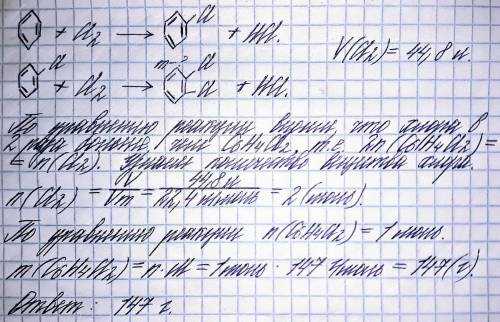 + Cl2 → Cl + HCl. V(Cl2) = 44,8 л.
Cl + Cl2 → m-? Cl Cl + HCl.
По уравнению реакции видим, что хлора в
2 раза больше, чем C6H4Cl2, т.е. 2n(C6H4Cl2) =
= n(Cl2). количество вещества хлора.
n(Cl2) = V/Vm = 44,8 л/22,4 л/моль = 2 (моль).
По уравнению реакции n(C6H4Cl2) = 1 моль.
m(C6H4Cl2) = n·M = 1 моль · 147 г/моль = 147 (г).
Ответ: 147 г.